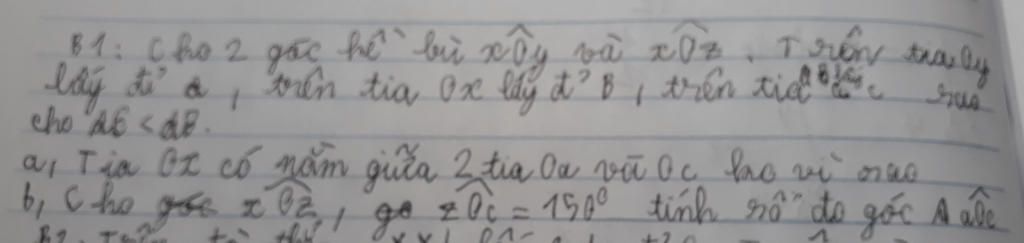 B1: Cho 2 góc kề bù xÔy và xÔz. Trên tia Oy
lấy đ' a, trên tia Ox lấy đ' B, trên tia c sao
cho AC < AB.
a, Tia Ox có nằm giữa 2 tia Oa và Oc ko vì sao
b, Cho xÔz, zÔc = 150° tính số đo góc A aÔc